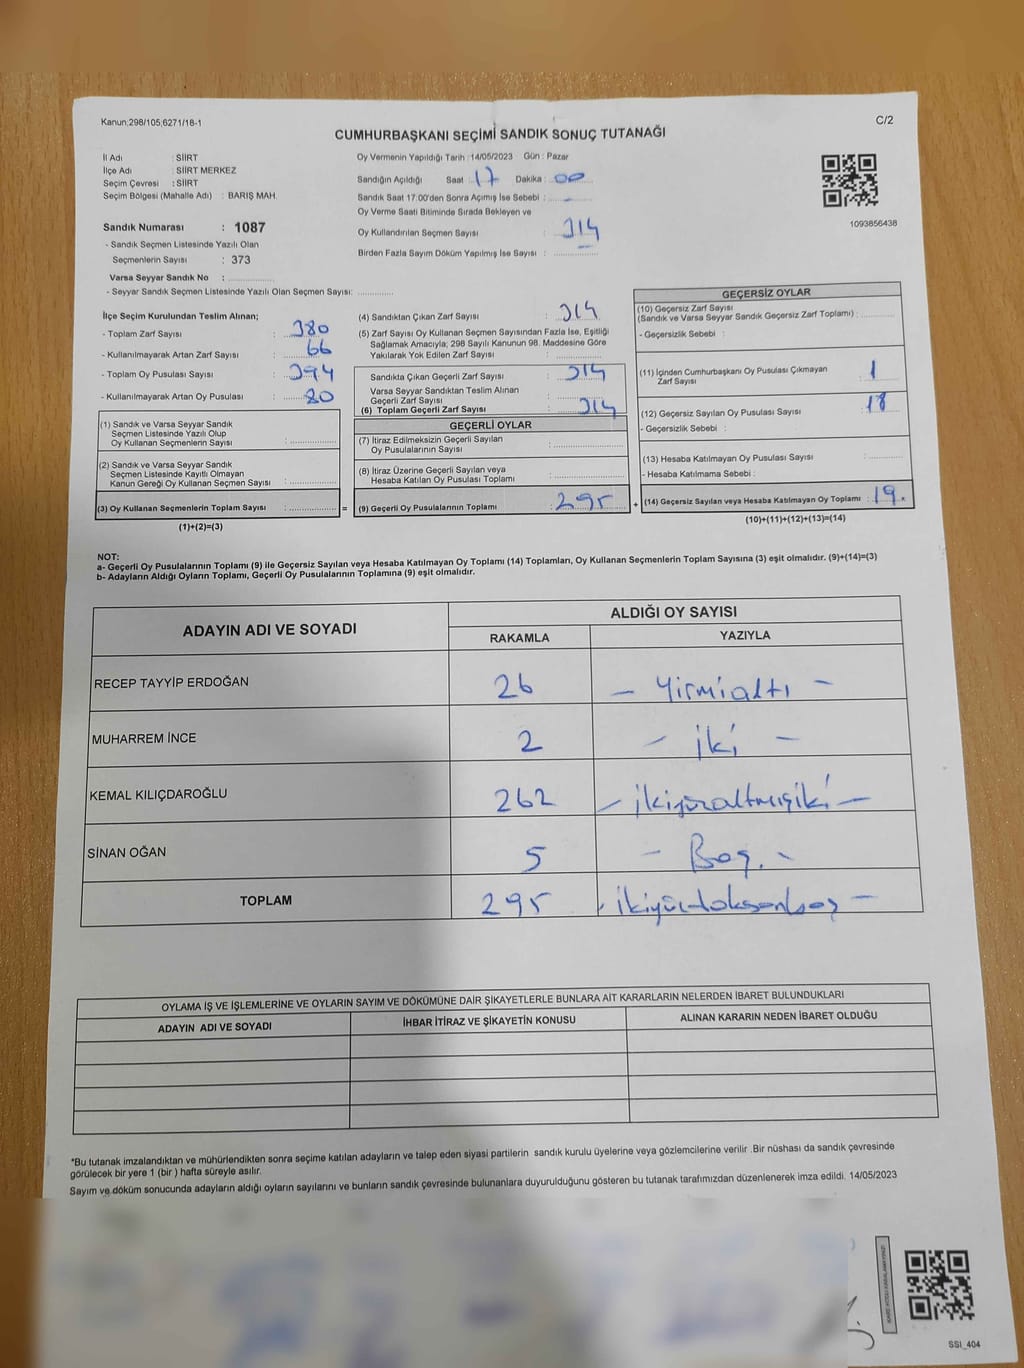 Kanun;298/105;6271/18-1
C/2
CUMHURBAŞKANI SEÇİMİ SANDIK SONUÇ TUTANAĞI
İl Adı : SİİRT
İlçe Adı : SİİRT MERKEZ
Seçim Çevresi : SİİRT
Seçim Bölgesi (Mahalle Adı) : BARIŞ MAH.
Sandık Numarası : 1087
- Sandık Seçmen Listesinde Yazılı Olan
Seçmenlerin Sayısı : 373
Varsa Seyyar Sandık No :
- Seyyar Sandık Seçmen Listesinde Yazılı Olan Seçmen Sayısı:
Oy Vermenin Yapıldığı Tarih :14/05/2023 Gün : Pazar
Sandığın Açıldığı Saat : 17 Dakika : 00
Sandık Saat 17:00'den Sonra Açımış İse Sebebi :
Oy Verme Saati Bitiminde Sırada Bekleyen ve
Oy Kullandırılan Seçmen Sayısı : 314
Birden Fazla Sayım Döküm Yapılmış İse Sayısı :
1093856438
İlçe Seçim Kurulundan Teslim Alınan;
- Toplam Zarf Sayısı : 380
- Kullanılmayarak Artan Zarf Sayısı : 66
- Toplam Oy Pusulası Sayısı : 394
- Kullanılmayarak Artan Oy Pusulası : 80
(1) Sandık ve Varsa Seyyar Sandık
Seçmen Listesinde Yazılı Olup
Oy Kullanan Seçmenlerin Sayısı :
(2) Sandık ve Varsa Seyyar Sandık
Seçmen Listesinde Kayıtlı Olmayan
Kanun Gereği Oy Kullanan Seçmen Sayısı :
(3) Oy Kullanan Seçmenlerin Toplam Sayısı : =
(1)+(2)=(3)
(4) Sandıktan Çıkan Zarf Sayısı : 314
(5) Zarf Sayısı Oy Kullanan Seçmen Sayısından Fazla İse, Eşitliği
Sağlamak Amacıyla; 298 Sayılı Kanunun 98. Maddesine Göre
Yakılarak Yok Edilen Zarf Sayısı :
Sandıkta Çıkan Geçerli Zarf Sayısı : 314
Varsa Seyyar Sandıktan Teslim Alınan
Geçerli Zarf Sayısı :
(6) Toplam Geçerli Zarf Sayısı : 314
GEÇERLİ OYLAR
(7) İtiraz Edilmeksizin Geçerli Sayılan
Oy Pusulalarının Sayısı :
(8) İtiraz Üzerine Geçerli Sayılan veya
Hesaba Katılan Oy Pusulası Toplamı :
(9) Geçerli Oy Pusulalarının Toplamı : 295 +
GEÇERSİZ OYLAR
(10) Geçersiz Zarf Sayısı
(Sandık ve Varsa Seyyar Sandık Geçersiz Zarf Toplamı) :
- Geçersizlik Sebebi :
(11) İçinden Cumhurbaşkanı Oy Pusulası Çıkmayan
Zarf Sayısı : 1
(12) Geçersiz Sayılan Oy Pusulası Sayısı : 18
- Geçersizlik Sebebi :
(13) Hesaba Katılmayan Oy Pusulası Sayısı :
- Hesaba Katılmama Sebebi :
(14) Geçersiz Sayılan veya Hesaba Katılmayan Oy Toplamı : 19
(10)+(11)+(12)+(13)=(14)
NOT:
a- Geçerli Oy Pusulalarının Toplamı (9) ile Geçersiz Sayılan veya Hesaba Katılmayan Oy Toplamı (14) Toplamları, Oy Kullanan Seçmenlerin Toplam Sayısına (3) eşit olmalıdır. (9)+(14)=(3)
b- Adayların Aldığı Oyların Toplamı, Geçerli Oy Pusulalarının Toplamına (9) eşit olmalıdır.
ADAYIN ADI VE SOYADI ALDIĞI OY SAYISI
RAKAMLA YAZIYLA
RECEP TAYYİP ERDOĞAN 26 - Yirmialtı -
MUHARREM İNCE 2 - iki -
KEMAL KILIÇDAROĞLU 262 - ikiyüzaltmışiki -
SİNAN OĞAN 5 - Beş. -
TOPLAM 295 - ikiyüzdoksanbeş -
OYLAMA İŞ VE İŞLEMLERİNE VE OYLARIN SAYIM VE DÖKÜMÜNE DAİR ŞİKAYETLERLE BUNLARA AİT KARARLARIN NELERDEN İBARET BULUNDUKLARI
ADAYIN ADI VE SOYADI İHBAR İTİRAZ VE ŞİKAYETİN KONUSU ALINAN KARARIN NEDEN İBARET OLDUĞU
*Bu tutanak imzalandıktan ve mühürlendikten sonra seçime katılan adayların ve talep eden siyasi partilerin sandık kurulu üyelerine veya gözlemcilerine verilir .Bir nüshası da sandık çevresinde
görülecek bir yere 1 (bir ) hafta süreyle asılır.
Sayım ve döküm sonucunda adayların aldığı oyların sayılarını ve bunların sandık çevresinde bulunanlara duyurulduğunu gösteren bu tutanak tarafımızdan düzenlenerek imza edildi. 14/05/2023
KARE KODU KARALAMAYINIZ!
SSI_404